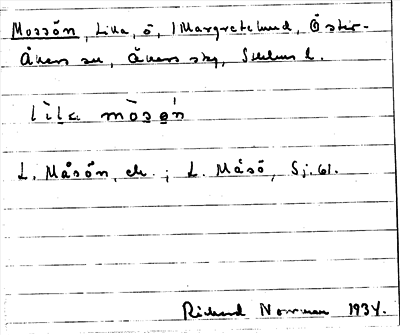 Mossön, Lilla, ö, i Margretelund, Öster-
Åkers sn, Åkers skg, Sthlms l.
lìla mòsøn
L. Måsön, ek. ; L. Måsö, Sj. 61.
Rickard Norrman 1934.